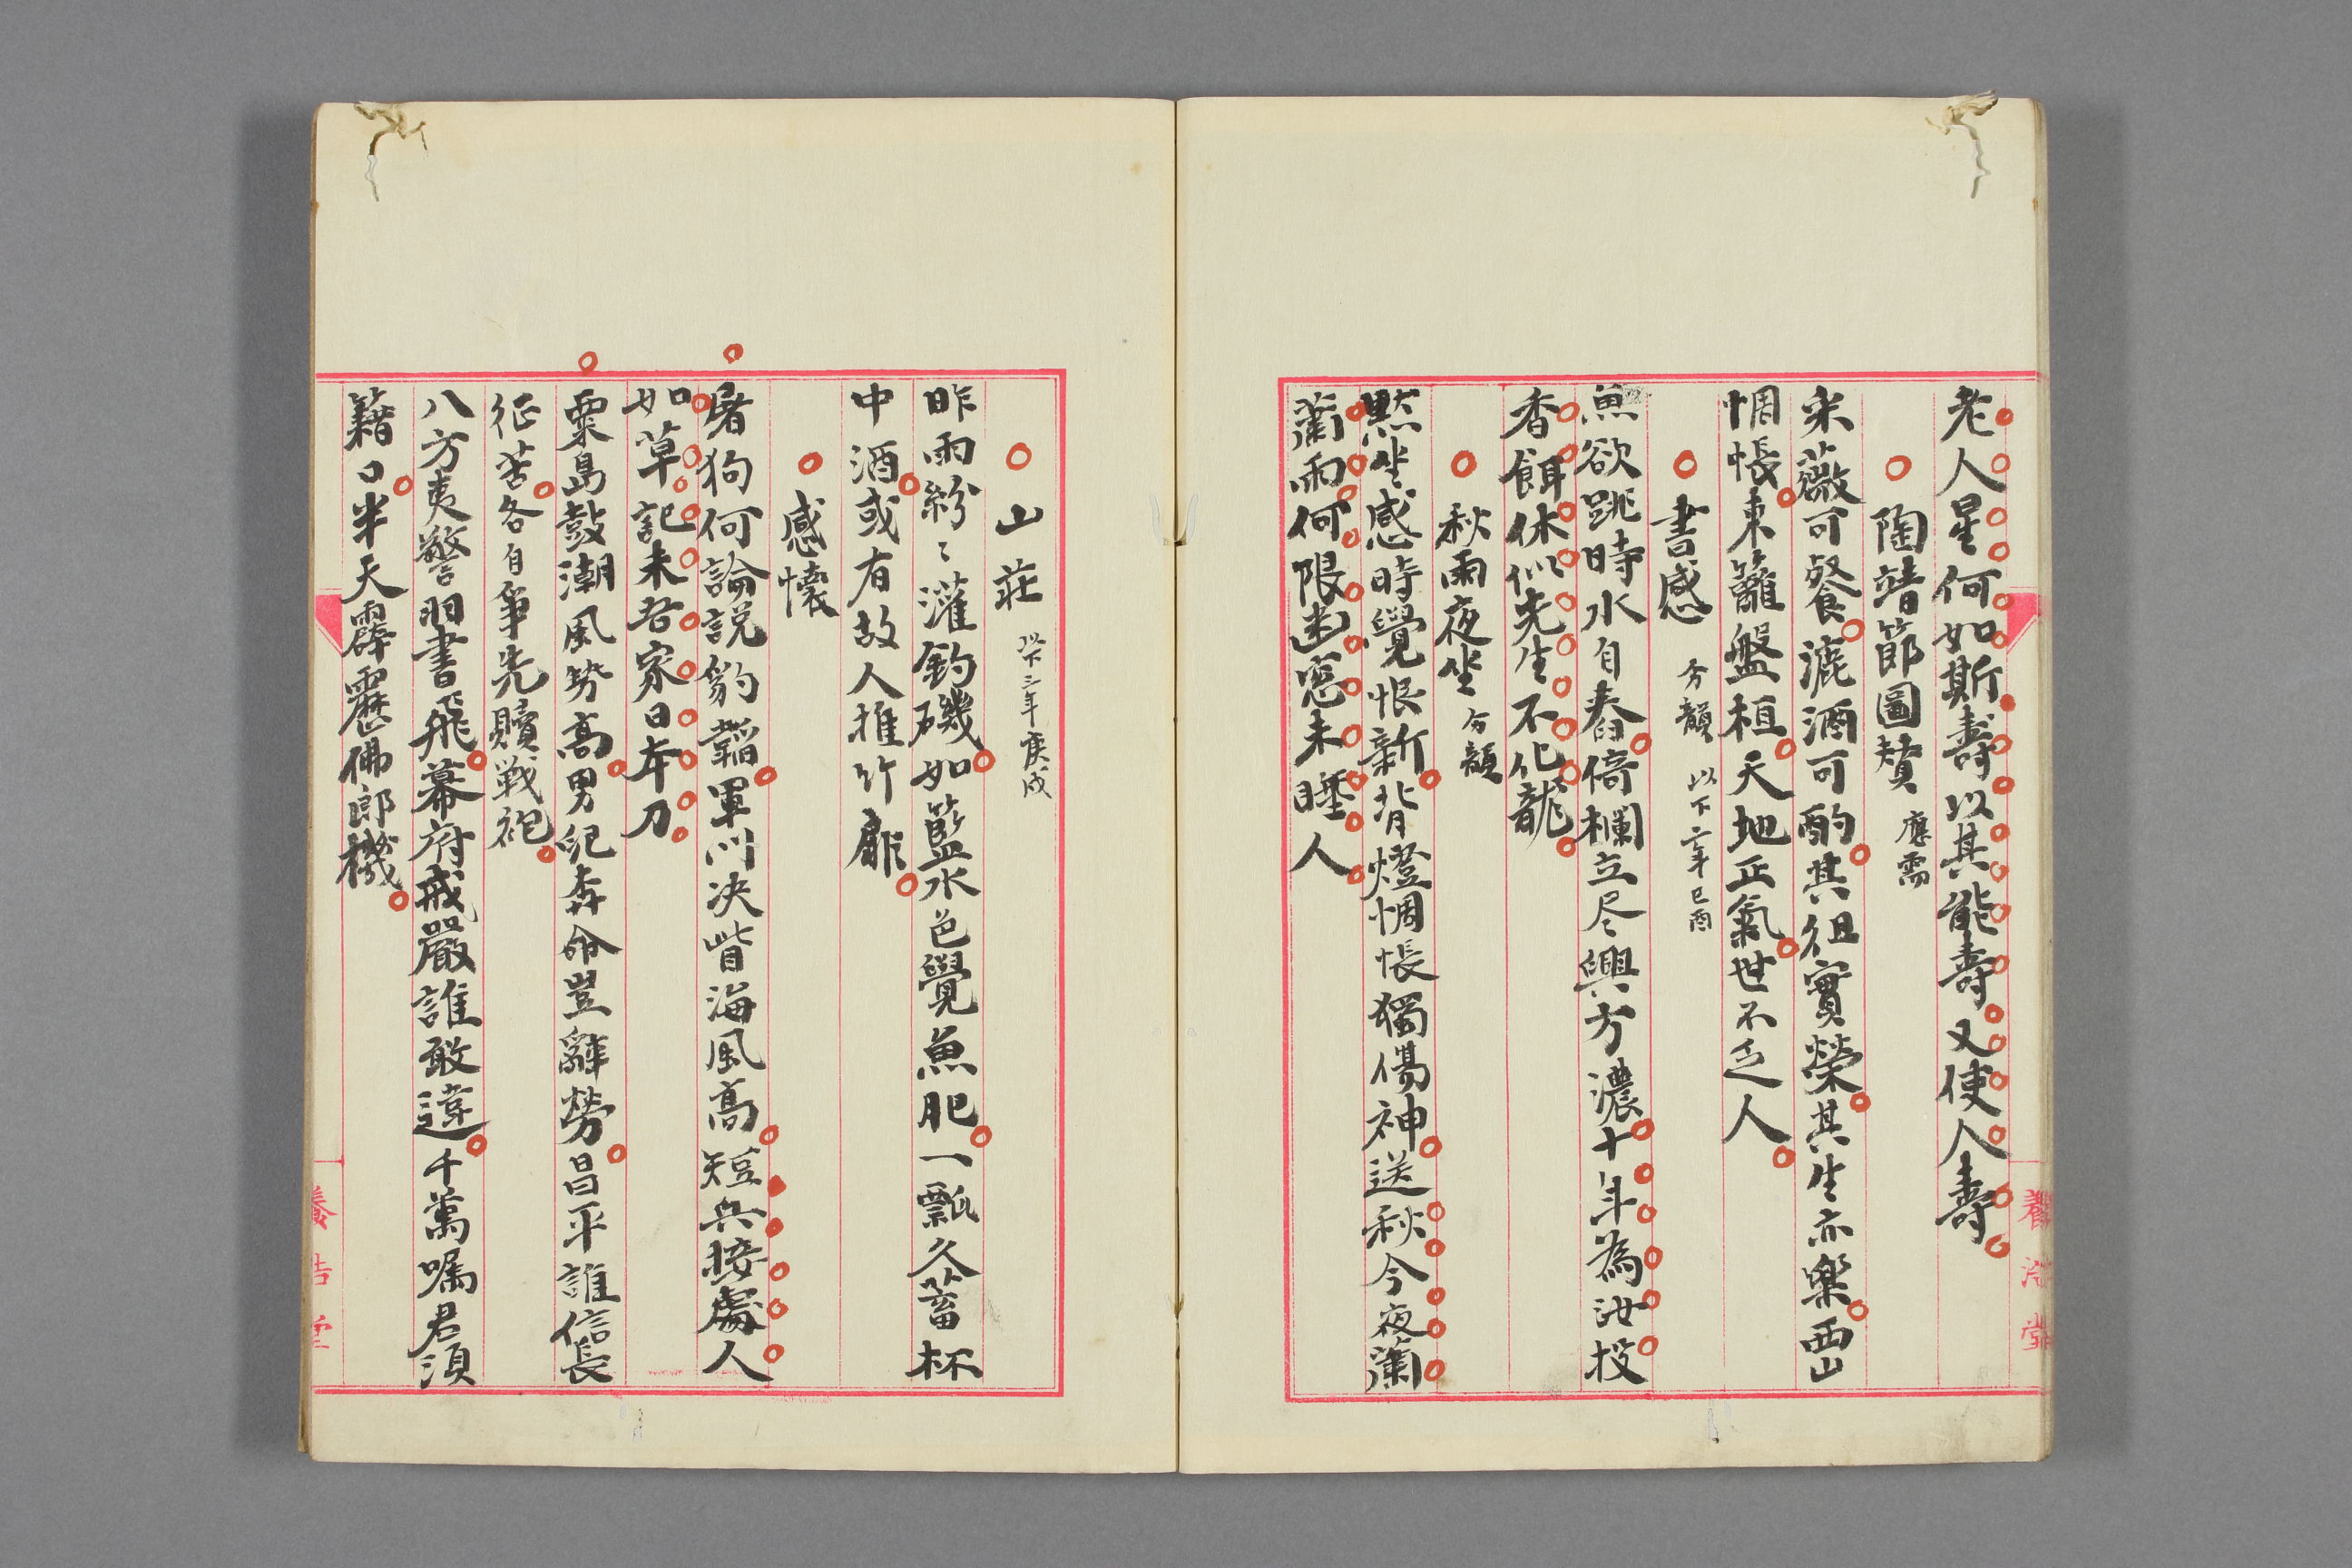 老人星何如斯壽以其能壽又使人壽
陶靖節圖賛 應需
采薇可餐漉酒可酌其徂實榮其生亦樂西山
惆悵東籬盤桓天地正氣世不乏人
書感 分韻 以下二年己酉
魚欲跳時水自舂倚欄立尽興方濃十年為汝投
香餌休似先生不化龍
秋雨夜坐 分韻
黙坐感時覺恨新背燈惆悵獨傷神送秋今夜蕭
蕭雨何限幽窓未睡人
山莊 以下三年庚戌
昨雨紛〻灌釣磯如籃水色覺魚肥一瓢久蓄杯
中酒或有故人推竹扉
感懐
屠狗何論説豹韜軍門决眥海風高短兵接處人
如草記未吾家日本刀
粟島鼓潮風勢高男児奔命豈辭勞昌平誰信長
征苦各自爭先贖戦袍
八方夷警羽書飛幕府戒嚴誰敢違千萬囑君須
籍口半天霹靂佛郎機
養浩堂
養浩堂